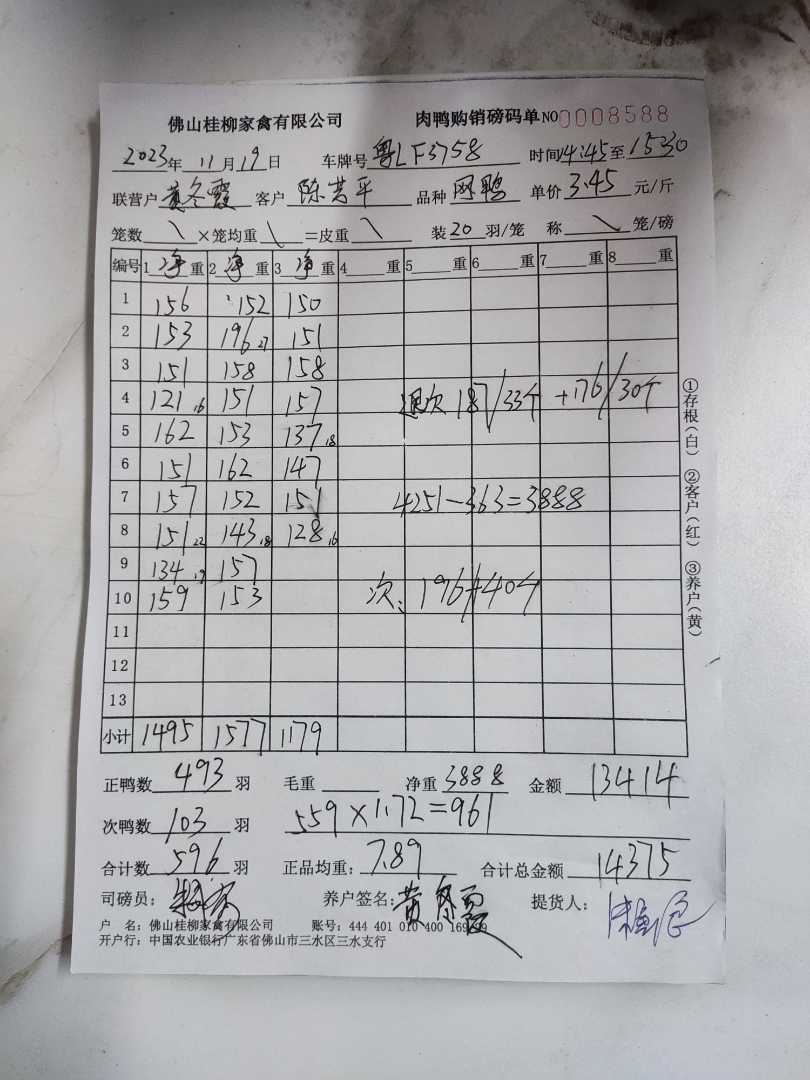 佛山桂柳家禽有限公司 肉鸭购销磅码单 NO 0008588
2023年 11月19日 车牌号 粤LF3758 时间14:45至15:30
联营户 黄冬霞 客户 陈艺平 品种 网鸭 单价 3.45 元/斤
笼数 \ ×笼均重 \ =皮重 \ 装20羽/笼 称 \ 笼/磅
编号 1 净重 2 净重 3 净重 4 重 5 重 6 重 7 重 8 重
1 156 152 150
2 153 196 27 151
3 151 158 158
4 121 16 151 157 退次 187/33个 +176/30个
5 162 153 137 18
6 151 162 147
7 157 152 151 4251-363=3888
8 151 22 143 18 128 16
9 134 19 157
10 159 153 次: 196/40个
11
12
13
小计 1495 1577 1179
①存根(白) ②客户(红) ③养户(黄)
正鸭数 493 羽 毛重 净重 3888 金额 13414
次鸭数 103 羽 559×1.72=961
合计数 596 羽 正品均重: 7.89 合计总金额 14375
司磅员: 养户签名: 黄冬霞 提货人:
户 名: 佛山桂柳家禽有限公司 账号: 444 401 010 400 169
开户行: 中国农业银行广东省佛山市三水区三水支行